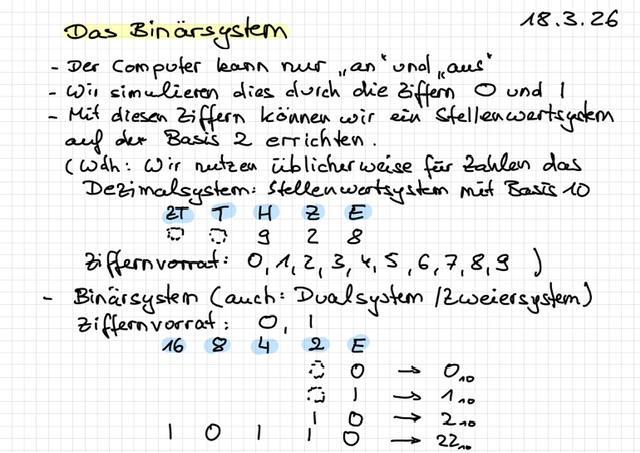 18.3.26
Das Binärsystem
- Der Computer kann nur „an“ und „aus“
- Wir simulieren dies durch die Ziffern 0 und 1
- Mit diesen Ziffern können wir ein Stellenwertsystem
auf der Basis 2 errichten.
(Wdh: Wir nutzen üblicherweise für Zahlen das
Dezimalsystem: Stellenwertsystem mit Basis 10
ZT T H Z E
0 0 9 2 8
Ziffernvorrat: 0, 1, 2, 3, 4, 5, 6, 7, 8, 9 )
- Binärsystem (auch: Dualsystem / Zweiersystem)
Ziffernvorrat: 0, 1
16 8 4 2 E
0 0 → 0₁₀
0 1 → 1₁₀
1 0 → 2₁₀
1 0 1 1 0 → 22₁₀